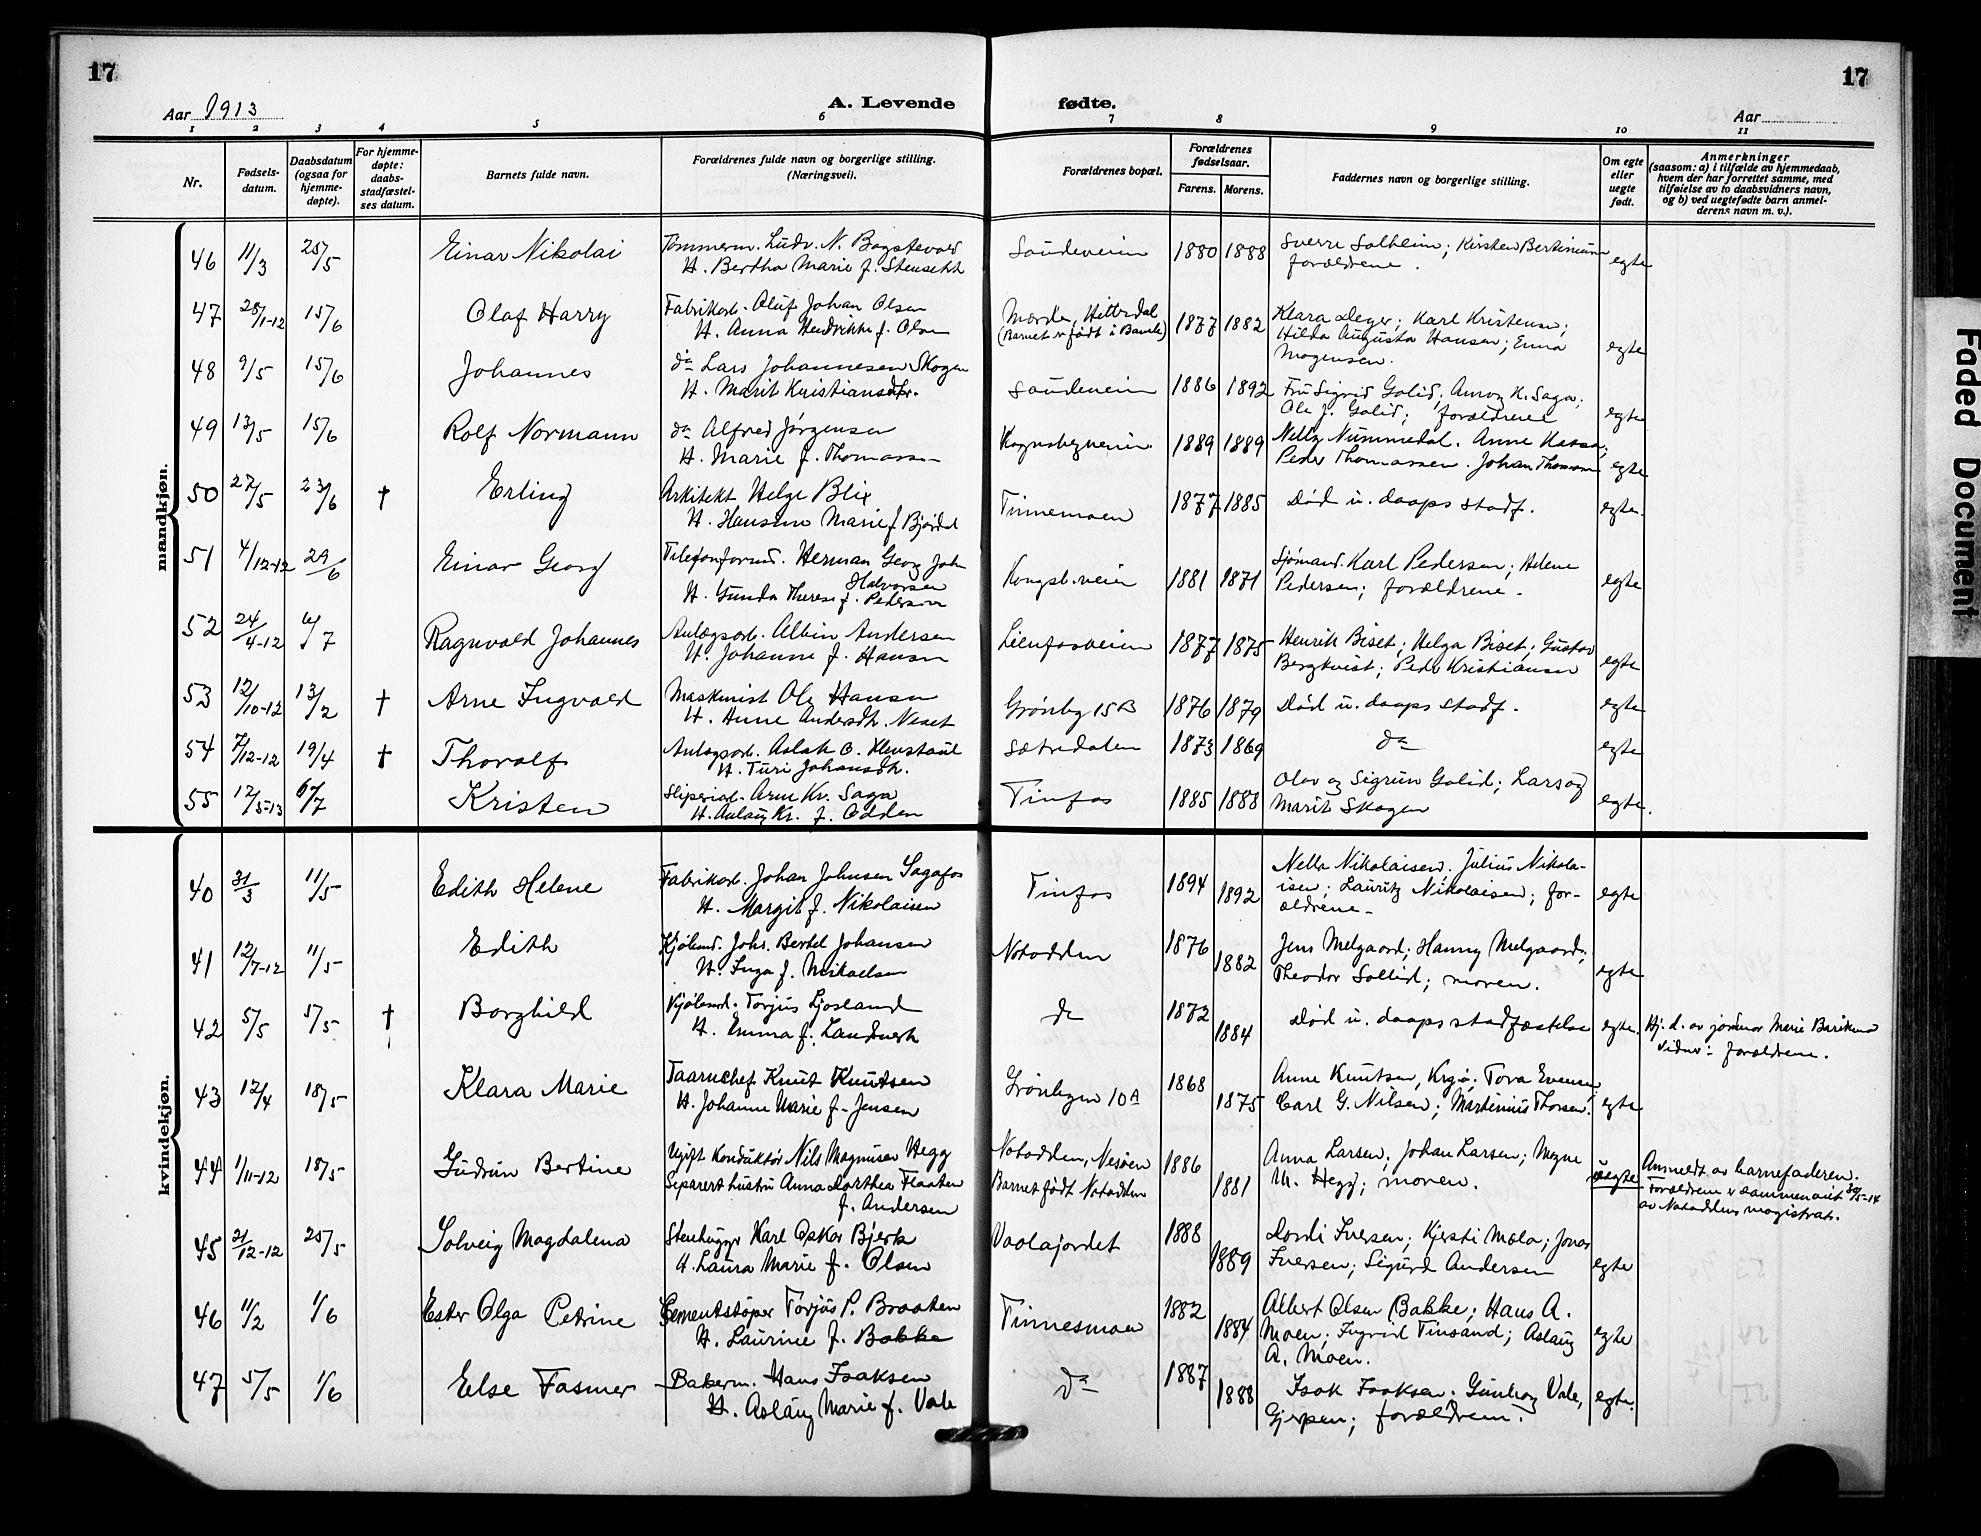 17
17
Aar 1913
A. Levende fødte.
Aar
1 2 3 4 5 6 7 8 9 10 11
Nr.
Fødsels-
datum.
Daabsdatum
(ogsaa for
hjemme-
døpte).
For hjemme-
døpte:
daabs-
stadfæstel-
ses datum.
Barnets fulde navn.
Forældrenes fulde navn og borgerlige stilling.
(Næringsvei).
Forældrenes bopæl.
Forældrenes
fødselsaar.
Farens. Morens.
Faddernes navn og borgerlige stilling.
Om egte
eller
uegte
født.
Anmerkninger
(saasom: a) i tilfælde av hjemmedaab,
hvem der har forrettet samme, med
tilføielse av to daabsvidners navn,
og b) ved uegtefødte barn anmel-
derens navn m. v.).
mandkjøn.
46 11/3 25/5 Einar Nikolai Tømmerm. Ludv. N. Bogstevold Saudeveien 1880 1888 Sverre Solheim; Kirsten Bertinium
H. Bertha Marie f. Stensekk forældrene. egte
47 28/1-12 15/6 Olaf Harry Fabrikarb. Oluf Johan Olsen Mærde, Hitterdal 1877 1882 Klara Deger; Karl Kristensen;
H. Anna Hendrikke f. Olsen (Barnet er født i Bamle) Hilda Augusta Hansen; Emma
Mogensen. egte
48 9/5 15/6 Johannes do Lars Johannesen Skogen Saudeveien 1886 1892 Fru Sigrid Golid; Anvog K. Saga;
H. Marit Kristiansdtr. Ole J. Golid; forældrene egte
49 13/5 15/6 Rolf Normann do Alfred Jørgensen 1889 1889 Nelly Nummedal. Anne Hassa;
H. Marie f. Thomassen Peder Thomassen. Johan Thomassen egte
50 27/5 23/6 † Erling Arkitekt Helge Blix Tinnemoen 1877 1885 Død u. daaps stadf. egte.
H. Hansine Marie f. Bjørdal
51 4/12-12 29/6 Einar Georg Telefonformd. Herman Georg Joh. Kongsb.veien 1881 1871 Sjømand. Karl Pedersen; Helene
Halvorsen
H. Gunda Therese f. Pedersen Pedersen; forældrene. egte
52 24/4-12 6/7 Ragnvald Johannes Anlægsarb. Albin Andersen Lienfosveien 1877 1875 Henrik Biset; Helga Biset; Gustav
H. Johanne f. Hansen Bergkvist; Peder Kristiansen egte
53 12/10-12 13/2 † Arne Ingvald Maskinist Ole Hansen Grønbg 15 B 1876 1879 Død u. daaps stadf. egte
H. Anne Andersdtr. Neset
54 7/12-12 19/4 † Thoralf Anlægsarb. Aslak O. Sætredalen 1873 1869 do egte
H. Turi Johansdtr.
55 12/5-13 6/7 Kristen Sliperiarb. Arne Kr. Saga Tinfos 1885 1888 Olav og Sigrun Golid; Lars og
H. Aslaug Kr. f. Odden Marit Skogen egte.
kvindekjøn.
40 31/3 11/5 Edith Helene Fabrikarb. Johan Johnsen Sagafos Tinfos 1894 1892 Nella Nikolaisen; Julius Nikola-
H. Margit f. Nikolaisen isen; Lauritz Nikolaisen; for-
ældrene. egte
41 12/7-12 11/5 Edith Kjølmd. Johs. Bertel Johansen Notodden 1876 1882 Jens Melgaard; Hanny Melgaard;
H. Inga f. Mikaelsen Theodor Sollid; moren. egte
42 5/5 5/5 † Borghild Kjølmd. Torjus Ljosland do 1872 1884 Død u. daaps stadfæstelse egte. Hj. d. av jordmor Marie
H. Emma f. Landverk Vidner: forældrene.
43 12/4 18/5 Klara Marie Taarnchef Knut Knutsen Grønbyen 10 A 1868 1875 Anne Knutsen, Krgø; Tora Evensen,
H. Johanne Marie f. Jensen Carl G. Nilsen; Martinius Thorsen. egte
44 1/11-12 18/5 Gudrun Bertine Ugift Konduktør Nils Magnusen Hegg Notodden, Nesøen 1886 1881 Anna Larsen; Johan Larsen; Magne
Separert hustru Anna Dorthea Flaaten Barnet født Notodden M. Hegg; moren. uegte Anmeldt av barnefaderen.
f. Andersen Forældrene er sammenviet 30/5-14
av Notoddens magistrat.
45 21/12-12 25/5 Solveig Magdalena Stenhugger Karl Oskar Bjerk Vaalajordet 1888 1889 Dordi Iversen; Kjersti Mæla; Jonas
H. Laura Marie f. Olsen Iversen; Sigurd Andersen egte
46 11/2 1/6 Ester Olga Petrine Cementstøper Torjus P. Braaten Tinnesmoen 1882 1884 Albert Olsen Bakke; Hans A.
H. Laurine f. Bakke Moen; Ingrid Tinsand; Aslaug
A. Moen. egte
47 5/5 1/6 Else Fasmer Bakerm. Hans Isaksen do 1887 1888 Isak Isaksen. Gunborg Vale,
H. Aslaug Marie f. Vale Gjerpen; forældrene. egte.
Faded Document